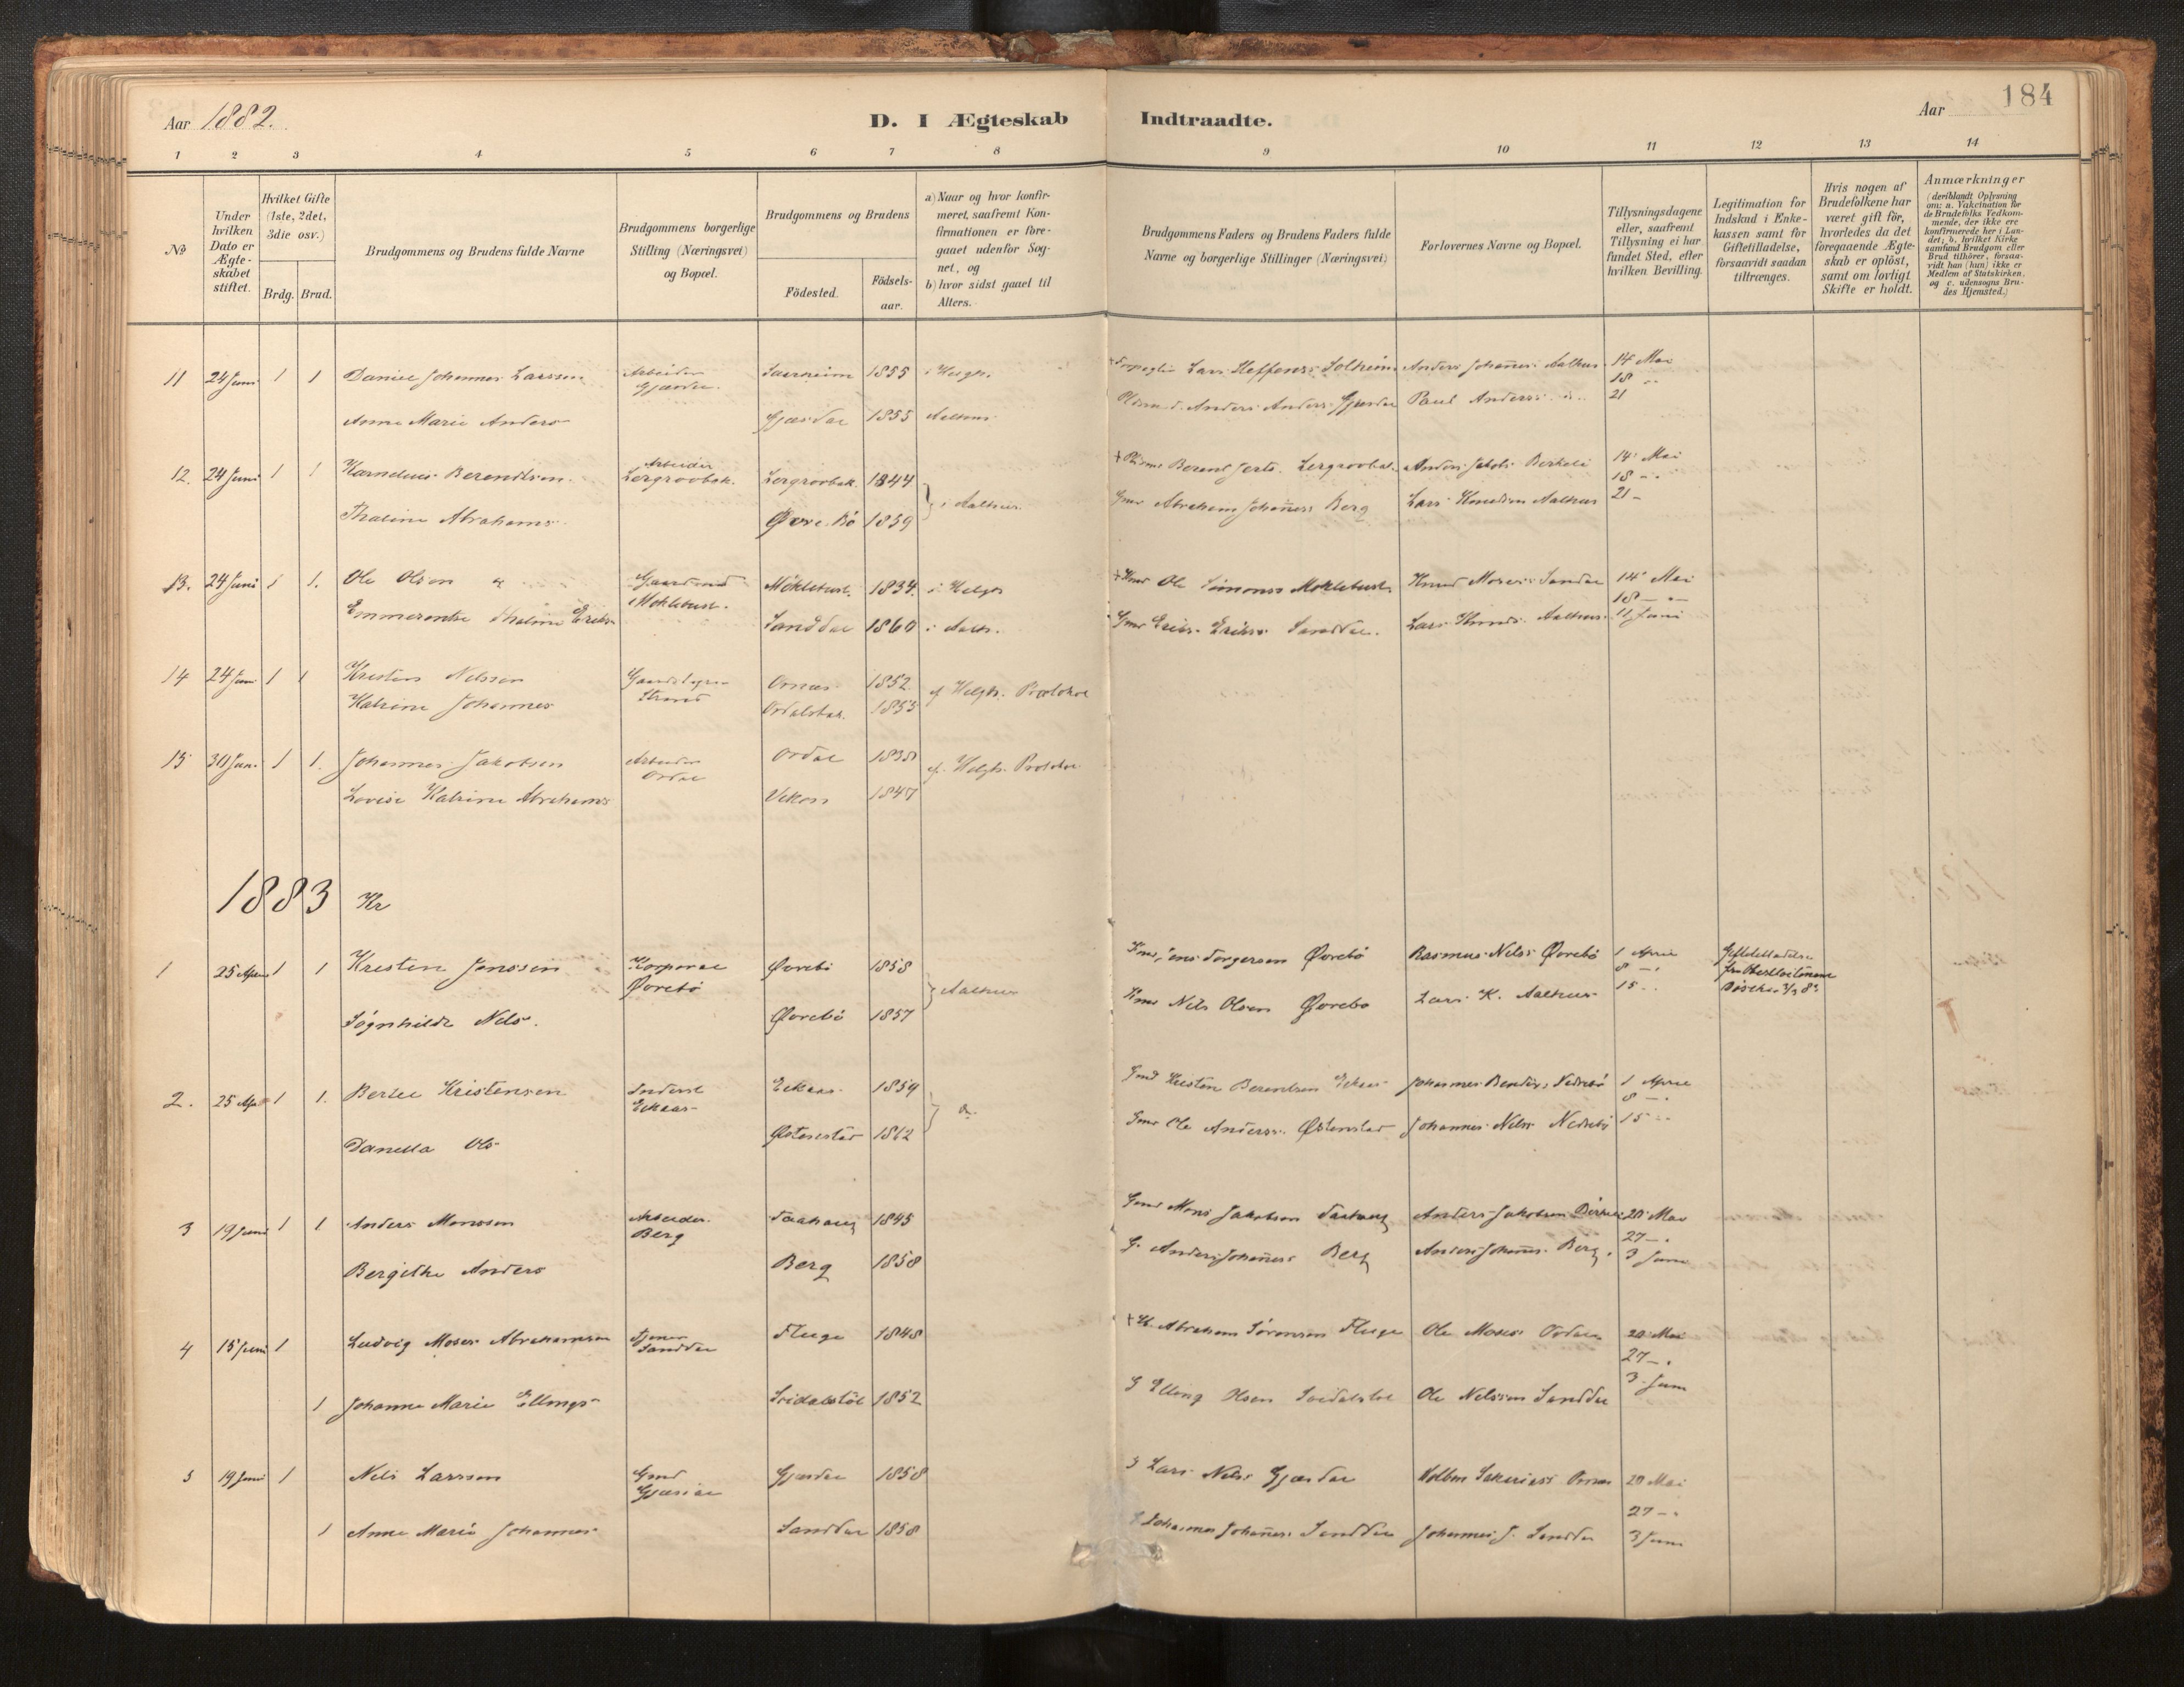 184
Aar 1882.
D. I Ægteskab Indtraadte.
Aar
1 2 3 4 5 6 7 8 9 10 11 12 13 14
No
Under hvilken Dato er Ægteskabet stiftet.
Hvilket Gifte (1ste, 2det, 3die osv.)
Brdg. Brud.
Brudgommens og Brudens fulde Navne
Brudgommens borgerlige Stilling (Næringsvei) og Bopæl.
Brudgommens og Brudens
Födested. Födselsaar.
a) Naar og hvor konfirmeret, saafremt Konfirmationen er foregaaet udenfor Sognet, og
b) hvor sidst gaaet til Alters.
Brudgommens Faders og Brudens Faders fulde Navne og borgerlige Stillinger (Næringsvei)
Forlovernes Navne og Bopæl.
Tillysningsdagene eller, saafremt Tillysning ei har fundet Sted, efter hvilken Bevilling.
Legitimation for Indskud i Enkekassen samt for Giftetilladelse, forsaavidt saadan tiltrænges.
Hvis nogen af Brudefolkene har været gift för, hvorledes da det foregaaende Ægteskab er oplöst, samt om lovligt Skifte er holdt.
Anmærkninger
(deriblandt Oplysning om: a. Vakcination for de Brudefolks Vedkommende, der ikke ere konfirmerede her i Landet; b. hvilket Kirkesamfund Brudgom eller Brud tilhörer, forsaavidt han (hun) ikke er Medlem af Statskirken, og c. udensogns Brudes Hjemsted.)
11 24 Juni 1 1 Daniel Johannes Larssen Arbeider 1855 i Helgh. Lars Steffens. Solheim Anders Johannes. Aalhus 14 Mai
Gjæsdal 18 -
Anne Marie Anders Gjæsdal 1855 Aalhus Anders Anders. Gjæsdal Paul Anders. 21
12. 24 Juni 1 1 Kornelius Berendtsen Arbeider Lergrovbak. Lergrovbak. 1844 i Aalhus Berent Lergrovbak. Anders Jakobs. Birkeli 14 Mai
18 -
Thaline Abrahams. Øvre Bö 1859 Gmd Abraham Johannes. Berg Lars Knudsen Aalhus 21 -
13. 24 Juni 1 1. Ole Olsen Gaardmd Möklebust. 1834. i Helgh Ole Simons. Moklebust Knud Moses. Sandal 14 Mai
Moklebust. 18 -
Emmerentse Thaline Eriks- Sanddal 1860 i Aalh. Gmd Erik Eriks. Sanddal. Lars Knuds. Aalhus. 11 Juni
14 24 Juni 1 1 Kristen Nelssen Strand Ornæs 1852. cf Helgh. Protokol
Katrine Johannes 1853
15 30 Jun. 1 1. Johannes Jakobsen Arbeider Ordal 1838 cf. Helgh. Protokol
Ordal
Lovise Katrine Abrahams 1847
1883 Kr
1 25 April 1 1 Kristen Jenssen Korporal Øvrebö 1858 Aalhus Jens Torgersen Øvrebö Rasmus Nels. Øvrebö 1 April Giftetilladelse
Øvrebö 8 -
Sögnhilde Nels. Øvrebö 1857 Nels Olsen Øvrebö Lars K. Aalhus 15 -
2. 25 Apr 1 1. Bertel Kristensen Eikaas 1859 Gmd Kristen Berentsen Eikaas Johannes Bendix. Nedrebö 1 April
Eikaas 8 -
Danella Ols- Østenstad 1862 Gmd Ole Anders. Østenstad Johannes Nels. Nedrebö 15 -
3 19 Juni 1 1. Anders Monssen Arbeider. 1845 Gmd Mons Jakobsen Anders Jakobsen 20 Mai
Berg 27 -
Bergithe Anders Berg 1858 G. Anders Johannes. Berg Anders Johannes. Berg. 3 Juni
4 15 Juni 1 Ludvig Moses Abrahamsen Tjener Fluge 1848 Abraham Sörensen Fluge Ole Moses. Ordal 20 Mai
Sanddal 27 -
1 Johanne Marie Ellings- Svidalstöl 1852 G Elling Olsen Svidalstöl Ole Nelssen Sanddal 3 Juni
5 19 Juni 1 Nels Larssen Gmd Gjæsdal 1858 G Lars Nels. Gjæsdal 20 Mai
Gjæsdal 27 -
1 Anne Marie Johannes- Sanddal 1858 Johannes Johannes. Sanddal Johannes J. Sanddal 3 Juni